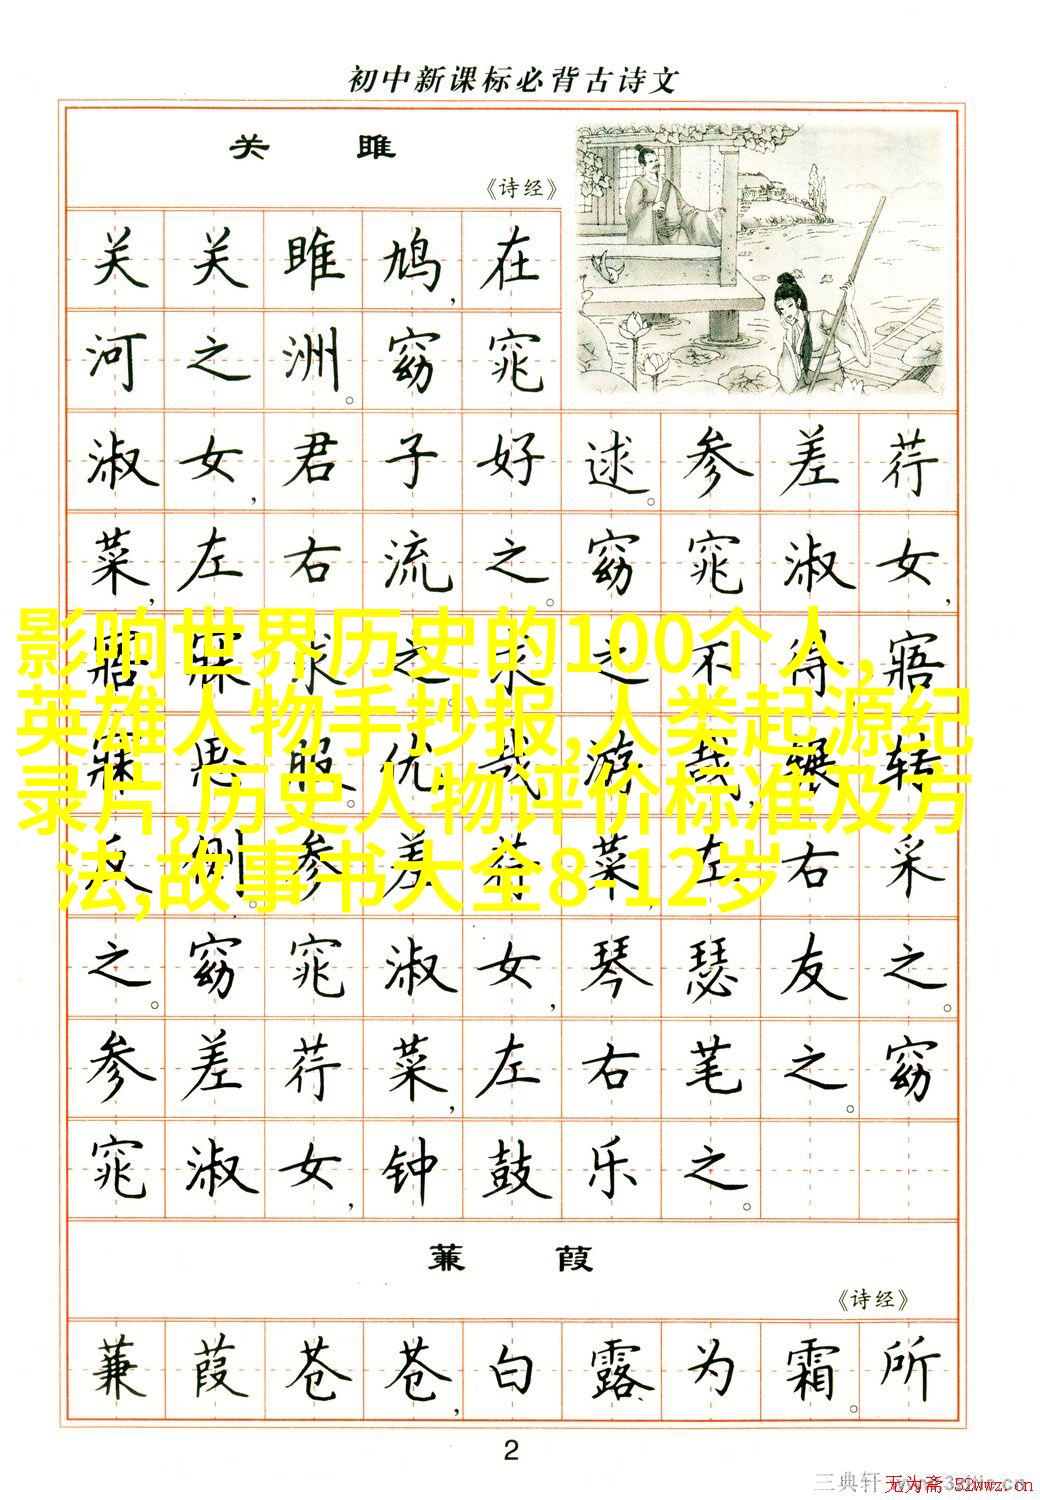 初中新课标必背古诗文
关雎
《诗经》
关关雎鸠,在
河之洲。窈窕
淑女,君子好逑。参差荇
菜,左右流之。窈窕淑女,
寤寐求之。求之不得,寤
寐思服。优哉游哉,辗转
反侧。参差荇菜,左右采
之。窈窕淑女,琴瑟友之。
参差荇菜,左右芼之。窈
窕淑女,钟鼓乐之。
影响世界历史的100个人,
英雄人物手抄报,人类起源纪
录片,历史人物评价标准及方
法,故事书大全8-12岁
蒹葭
《诗经》
蒹葭苍苍,白露为霜。所
2
三典轩
无为斋 52wwz.cn